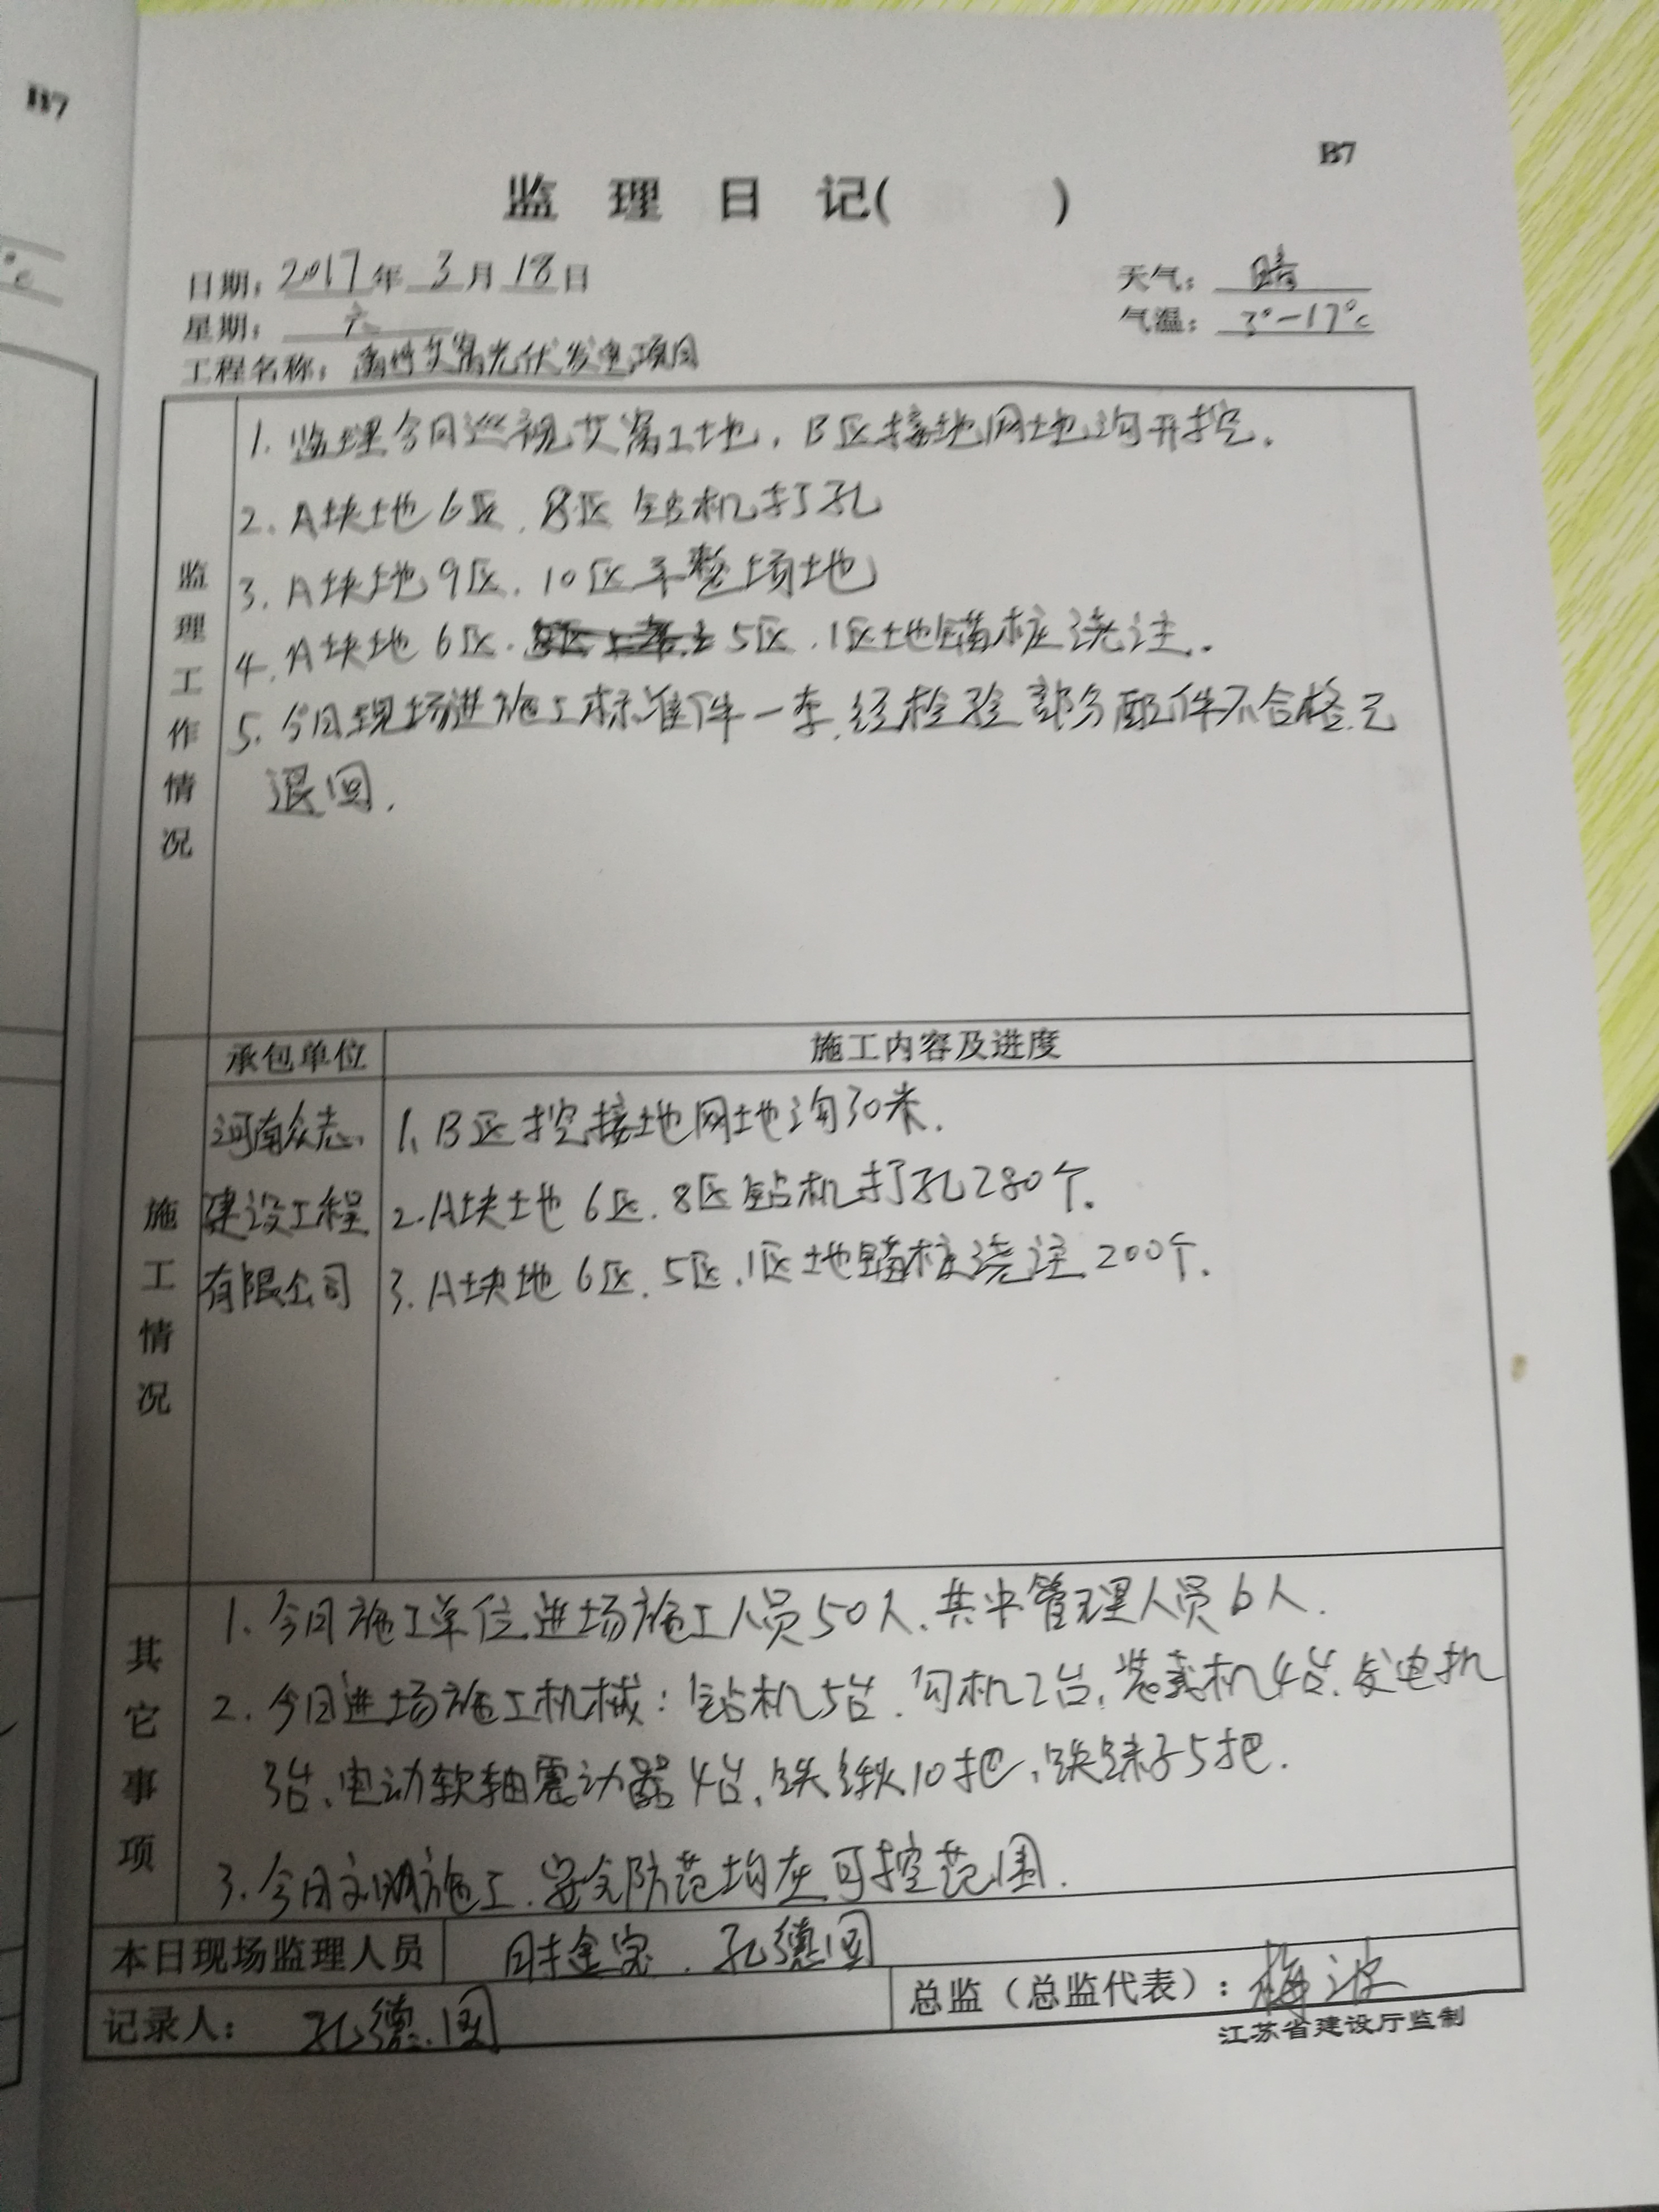 B7
B7
监 理 日 记( )
日期: 2017年 3月 18日
天气: 晴
星期: 六
气温: 3°-17°c
工程名称: 禹州艾嵩光伏发电项目
监理工作情况
1. 监理今日巡视艾嵩工地, B区接地网地沟开挖.
2. A块地6区. 8区 钻机打孔
3. A块地9区. 10区平整场地
4. A块地 6区. 5区. 1区地锚桩浇注.
5. 今日现场进施工标准件一车, 经检验部分配件不合格已
退回.
承包单位
施工内容及进度
施工情况
河南众志
建设工程
有限公司
1. B区挖接地网地沟30米.
2. A块土地 6区. 8区钻机打孔280个.
3. A块地 6区. 5区. 1区地锚桩浇注200个.
其它事项
1. 今日施工单位进场施工人员50人. 其中管理人员6人.
2. 今日进场施工机械: 钻机5台. 勾机2台. 装载机4台. 发电机
3台. 电动软轴震动器4台. 铁锹10把. 铁锤子5把.
3. 今日文明施工. 安全防范均在可控范围.
本日现场监理人员
金宝. 孔德园
记录人: 孔德园
总监(总监代表): 梅波
江苏省建设厅监制